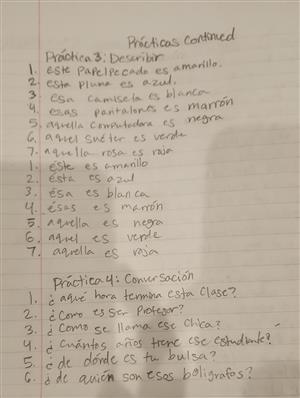 Prácticas Continued
Práctica 3: Describir
1. este papel pecado es amarillo.
2. esta pluma es azul.
3. esa camiseta es blanca
4. esas pantalones es marrón
5. aquella computadora es negra
6. aquel suéter es verde
7. aquella rosa es roja
1. éste es amarillo
2. ésta es azul
3. ésa es blanca
4. ésas es marrón
5. aquella es negra
6. aquel es verde
7. aquella es roja
Práctica 4: Conversación
1. ¿aqué hora termina esta clase?
2. ¿Como es ser profesor?
3. ¿Como se llama ese chica?
4. ¿Cuántos años tiene ese estudiante?
5. ¿de dónde es tu bulsa?
6. ¿de quién son esos boligrafos?